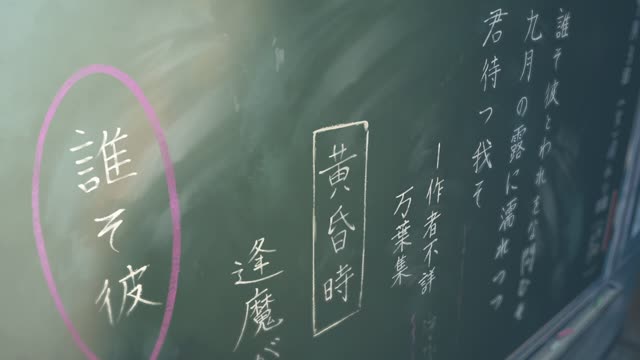 誰そ彼とわれをな問ひそ
九月の露に濡れつつ
君待つ我そ
ー作者不詳
万葉集
黄昏時
逢魔が
誰そ彼